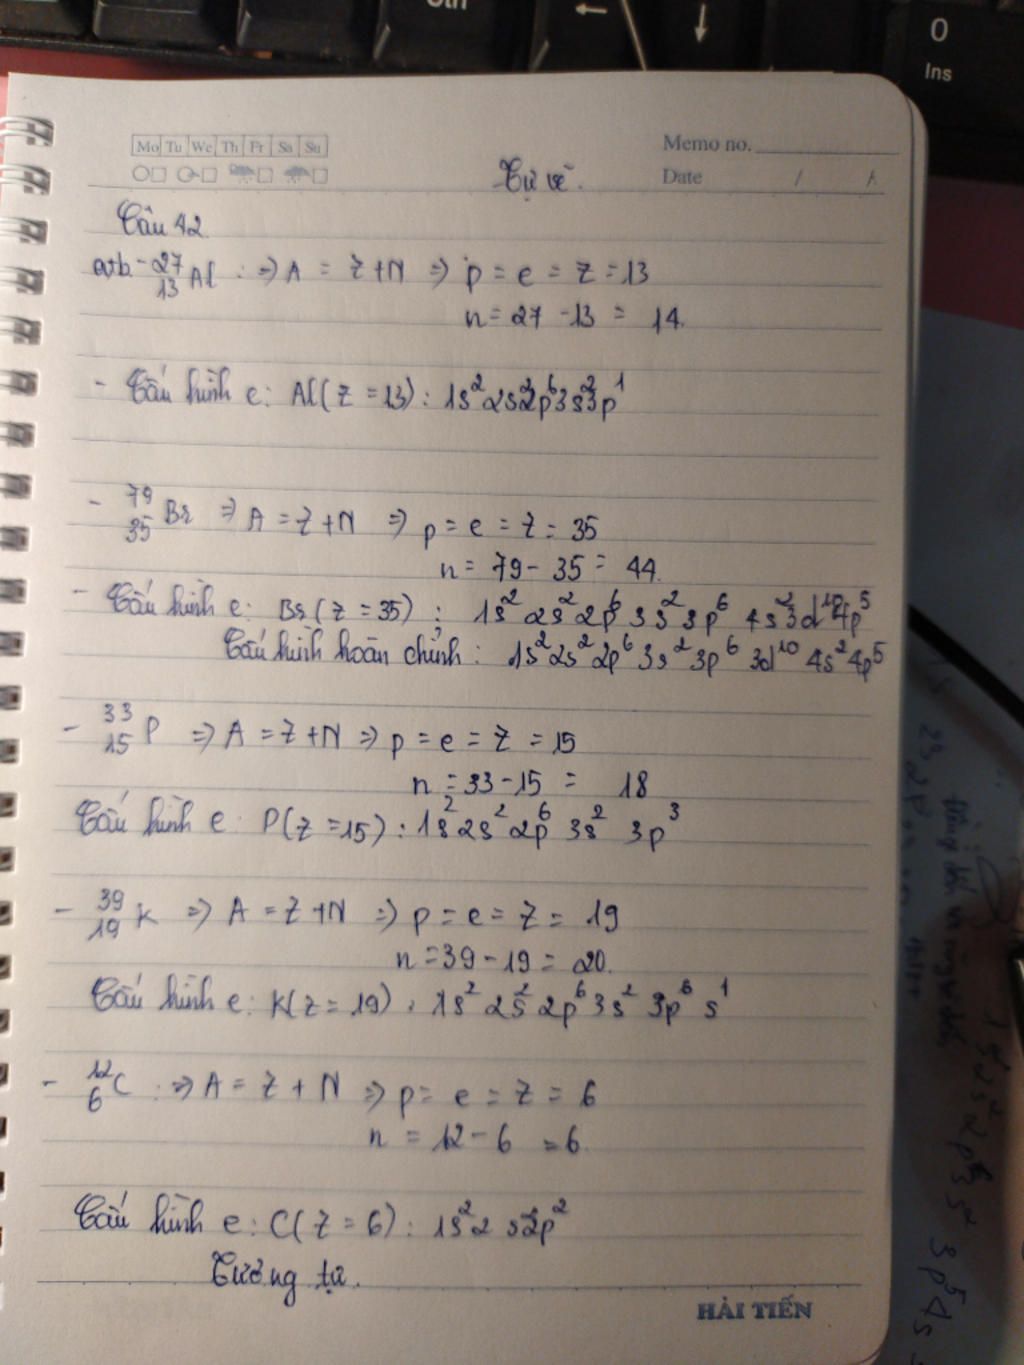 Ctrl
←
↓
0
Ins
Mo Tu We Th Fr Sa Su
Memo no.
Tự vẽ.
Date / /
Câu 42
a+b. - 27 13 Al : => A = Z+N => p = e = Z = 13
n = 27 - 13 = 14.
- Cấu hình e: Al (Z = 13) : 1s² 2s² 2p⁶ 3s² 3p¹
- 79 35 Br => A = Z+N => p = e = Z = 35
n = 79 - 35 = 44.
- Cấu hình e: Br (Z = 35) : 1s² 2s² 2p⁶ 3s² 3p⁶ 4s² 3d¹⁰ 4p⁵
Cấu hình hoàn chỉnh : 1s² 2s² 2p⁶ 3s² 3p⁶ 3d¹⁰ 4s² 4p⁵
- 33 15 P => A = Z+N => p = e = Z = 15
n = 33 - 15 = 18
Cấu hình e: P (Z = 15) : 1s² 2s² 2p⁶ 3s² 3p³
- 39 19 K => A = Z+N => p = e = Z = 19
n = 39 - 19 = 20.
Cấu hình e: K (Z = 19) : 1s² 2s² 2p⁶ 3s² 3p⁶ s¹
- 12 6 C : => A = Z + N => p = e = Z = 6
n = 12 - 6 = 6.
Cấu hình e: C (Z = 6) : 1s² 2s² 2p²
Tương tự.
HẢI TIẾN